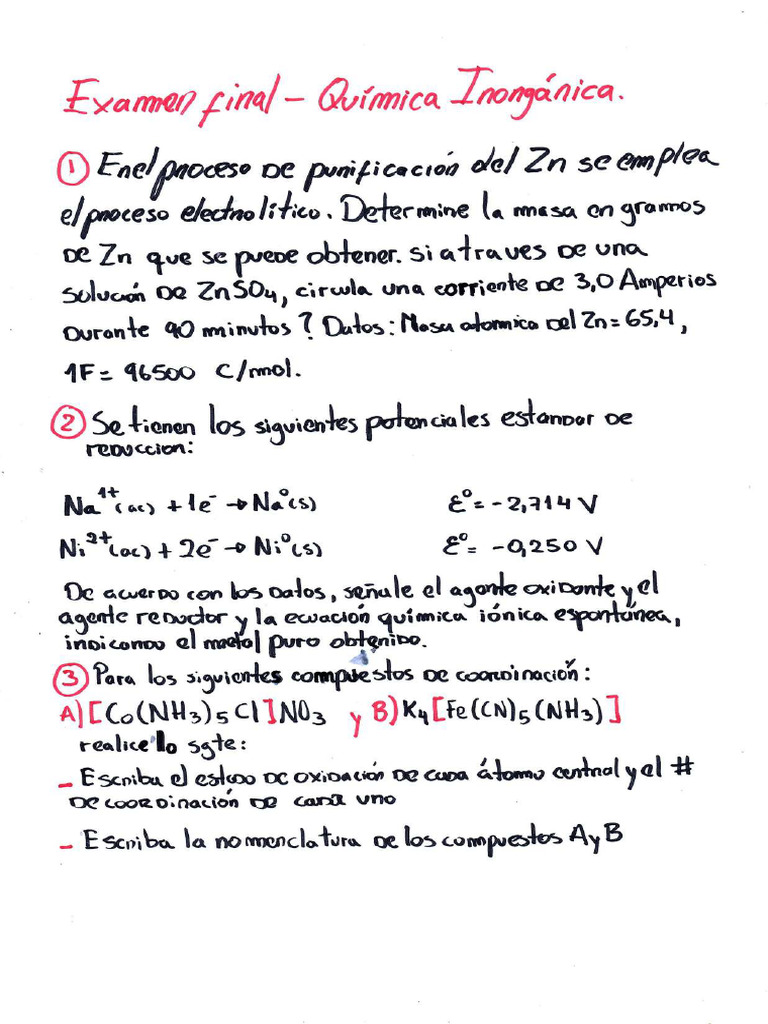 Examen final - Química Inorgánica.
① En el proceso de purificación del Zn se emplea
el proceso electrolítico. Determine la masa en gramos
de Zn que se puede obtener. si a traves de una
solución de ZnSO₄, circula una corriente de 3,0 Amperios
durante 90 minutos? Datos: Masa atomica del Zn = 65,4,
1F = 96500 C/mol.
② Se tienen los siguientes potenciales estandar de
reduccion:
Na¹⁺(ac) + 1e⁻ → Na⁰(s) ε⁰ = -2,714 V
Ni²⁺(ac) + 2e⁻ → Ni⁰(s) ε⁰ = -0,250 V
De acuerdo con los datos, señale el agente oxidante y el
agente reductor y la ecuación química iónica espontánea,
indicando el metal puro obtenido.
③ Para los siguientes compuestos de coordinación:
A) [Co(NH₃)₅Cl]NO₃ y B) K₄[Fe(CN)₅(NH₃)]
realice lo sgte:
- Escriba el estado de oxidación de cada átomo central y el #
de coordinación de cada uno
- Escriba la nomenclatura de los compuestos A y B